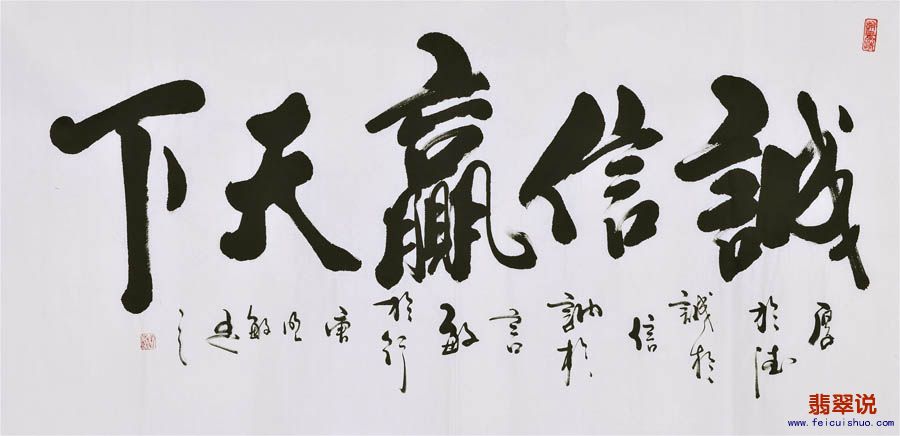 誠信贏天下
厚於德誠於信訥於言敏於行
翡翠说
www.feicuishuo.com